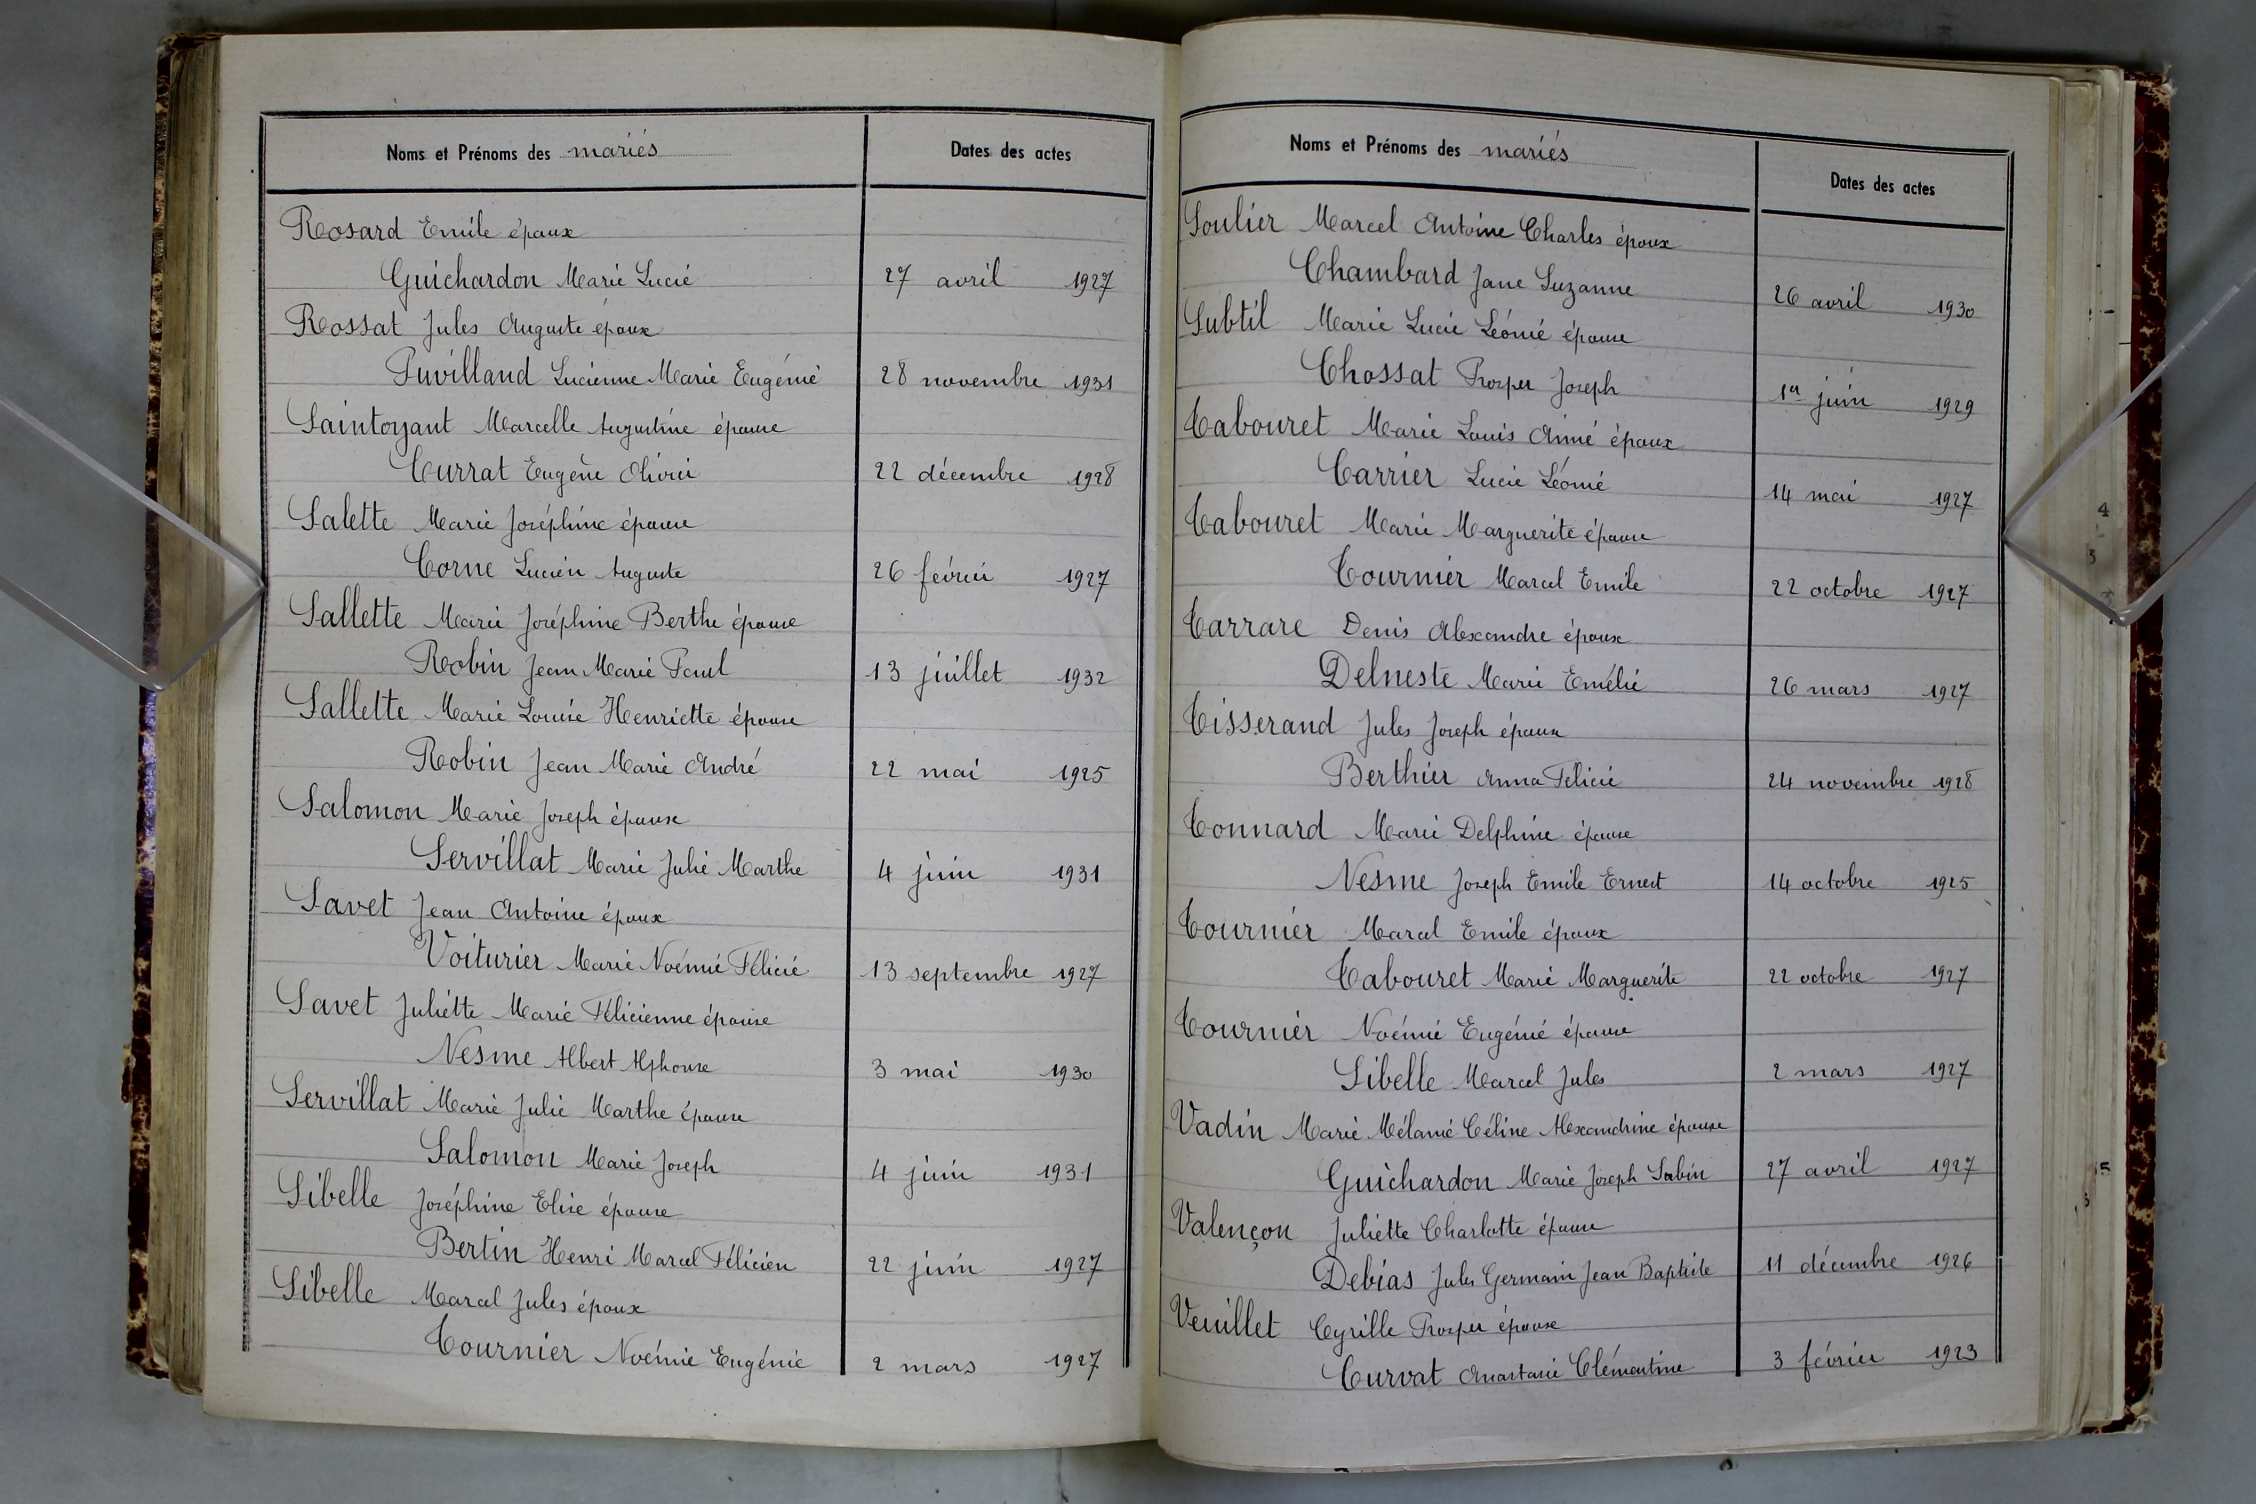 Noms et Prénoms des mariés Dates des actes
Rosard Emile époux
Guichardon Marie Lucie 27 avril 1927
Rossat Jules Auguste époux
Puvilland Lucienne Marie Eugénie 28 novembre 1931
Saintoyant Marcelle Augustine épouse
Currat Eugène Olivier 22 décembre 1928
Salette Marie Joséphine épouse
Corne Lucien Auguste 26 février 1927
Sallette Marie Joséphine Berthe épouse
Robin Jean Marie Paul 13 juillet 1932
Sallette Marie Louise Henriette épouse
Robin Jean Marie André 22 mai 1925
Salomon Marie Joseph épouse
Servillat Marie Julie Marthe 4 juin 1931
Savet Jean Antoine époux
Voiturier Marie Noémie Félicie 13 septembre 1927
Savet Juliette Marie Félicienne épouse
Nesme Albert Alphonse 3 mai 1930
Servillat Marie Julie Marthe épouse
Salomon Marie Joseph 4 juin 1931
Sibelle Joséphine Elise épouse
Bertin Henri Marcel Félicien 22 juin 1927
Sibelle Marcel Jules époux
Tournier Noémie Eugénie 2 mars 1927
Noms et Prénoms des mariés Dates des actes
Soulier Marcel Antoine Charles époux
Chambard Jane Suzanne 26 avril 1930
Subtil Marie Lucie Léonie épouse
Chossat Prosper Joseph 1er juin 1929
Tabouret Marie Louis Aimé époux
Carrier Lucie Léonie 14 mai 1927
Tabouret Marie Marguerite épouse
Tournier Marcel Emile 22 octobre 1927
Tarrare Denis Alexandre époux
Delneste Marie Emélie 26 mars 1927
Tisserand Jules Joseph époux
Berthier Anna Félicie 24 novembre 1928
Tonnard Marie Delphine épouse
Nesme Joseph Emile Ernest 14 octobre 1925
Tournier Marcel Emile époux
Tabouret Marie Marguerite 22 octobre 1927
Tournier Noémie Eugénie épouse
Sibelle Marcel Jules 2 mars 1927
Vadin Marie Mélanie Céline Alexandrine épouse
Guichardon Marie Joseph Sabin 27 avril 1927
Valençon Juliette Charlotte épouse
Debias Jules Germain Jean Baptiste 11 décembre 1926
Veuillet Cyrille Prosper épouse
Curvat Anastasie Clémentine 3 février 1923